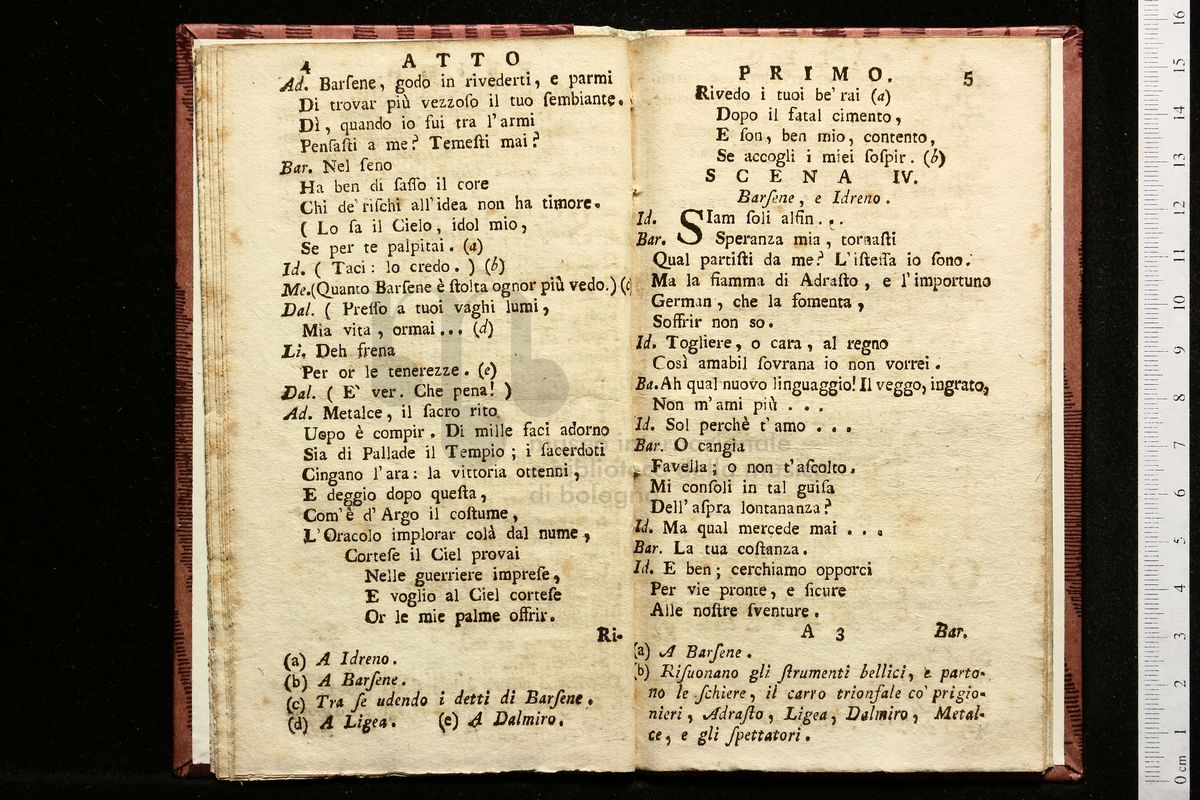 4 ATTO
Ad. Barſene, godo in rivederti, e parmi
Di trovar più vezzoſo il tuo ſembiante.
Dì, quando io fui tra l'armi
Penſaſti a me? Temeſti mai?
Bar. Nel ſeno
Ha ben di ſaſſo il core
Chi de' riſchi all'idea non ha timore.
( Lo ſa il Cielo, idol mio,
Se per te palpitai. (a)
Id. ( Taci: lo credo. ) (b)
Me.(Quanto Barſene è ſtolta ognor più vedo.) (c
Dal. ( Preſſo a tuoi vaghi lumi,
Mia vita, ormai... (d)
Li. Deh frena
Per or le tenerezze. (e)
Dal. ( E' ver. Che pena! )
Ad. Metalce, il ſacro rito
Uopo è compir. Di mille faci adorno
Sia di Pallade il Tempio; i ſacerdoti
Cingano l'ara: la vittoria ottenni,
E deggio dopo queſta,
Com'è d'Argo il coſtume,
L'Oracolo implorar colà dal nume,
Corteſe il Ciel provai
Nelle guerriere impreſe,
E voglio al Ciel corteſe
Or le mie palme offrir.
Ri-
(a) A Idreno.
(b) A Barſene.
(c) Tra ſe udendo i detti di Barſene.
(d) A Ligea. (e) A Dalmiro.
PRIMO. 5
Rivedo i tuoi be' rai (a)
Dopo il fatal cimento,
E ſon, ben mio, contento,
Se accogli i miei ſoſpir. (b)
SCENA IV.
Barſene, e Idreno.
Id. SIam ſoli alfin...
Bar. Speranza mia, tornaſti
Qual partiſti da me? L'iſteſſa io ſono.
Ma la fiamma di Adraſto, e l'importuno
German, che la fomenta,
Soffrir non so.
Id. Togliere, o cara, al regno
Così amabil ſovrana io non vorrei.
Ba. Ah qual nuovo linguaggio! Il veggo, ingrato,
Non m'ami più...
Id. Sol perchè t'amo...
Bar. O cangia
Favella; o non t'aſcolto.
Mi conſoli in tal guiſa
Dell'aſpra lontananza?
Id. Ma qual mercede mai...
Bar. La tua coſtanza.
Id. E ben; cerchiamo opporci
Per vie pronte, e ſicure
Alle noſtre ſventure.
A 3 Bar.
(a) A Barſene.
(b) Riſuonano gli ſtrumenti bellici, e parto-
no le ſchiere, il carro trionfale co' prigio-
nieri, Adraſto, Ligea, Dalmiro, Metal-
ce, e gli ſpettatori.
di bologna
0 cm 1 2 3 4 5 6 7 8 9 10 11 12 13 14 15 16